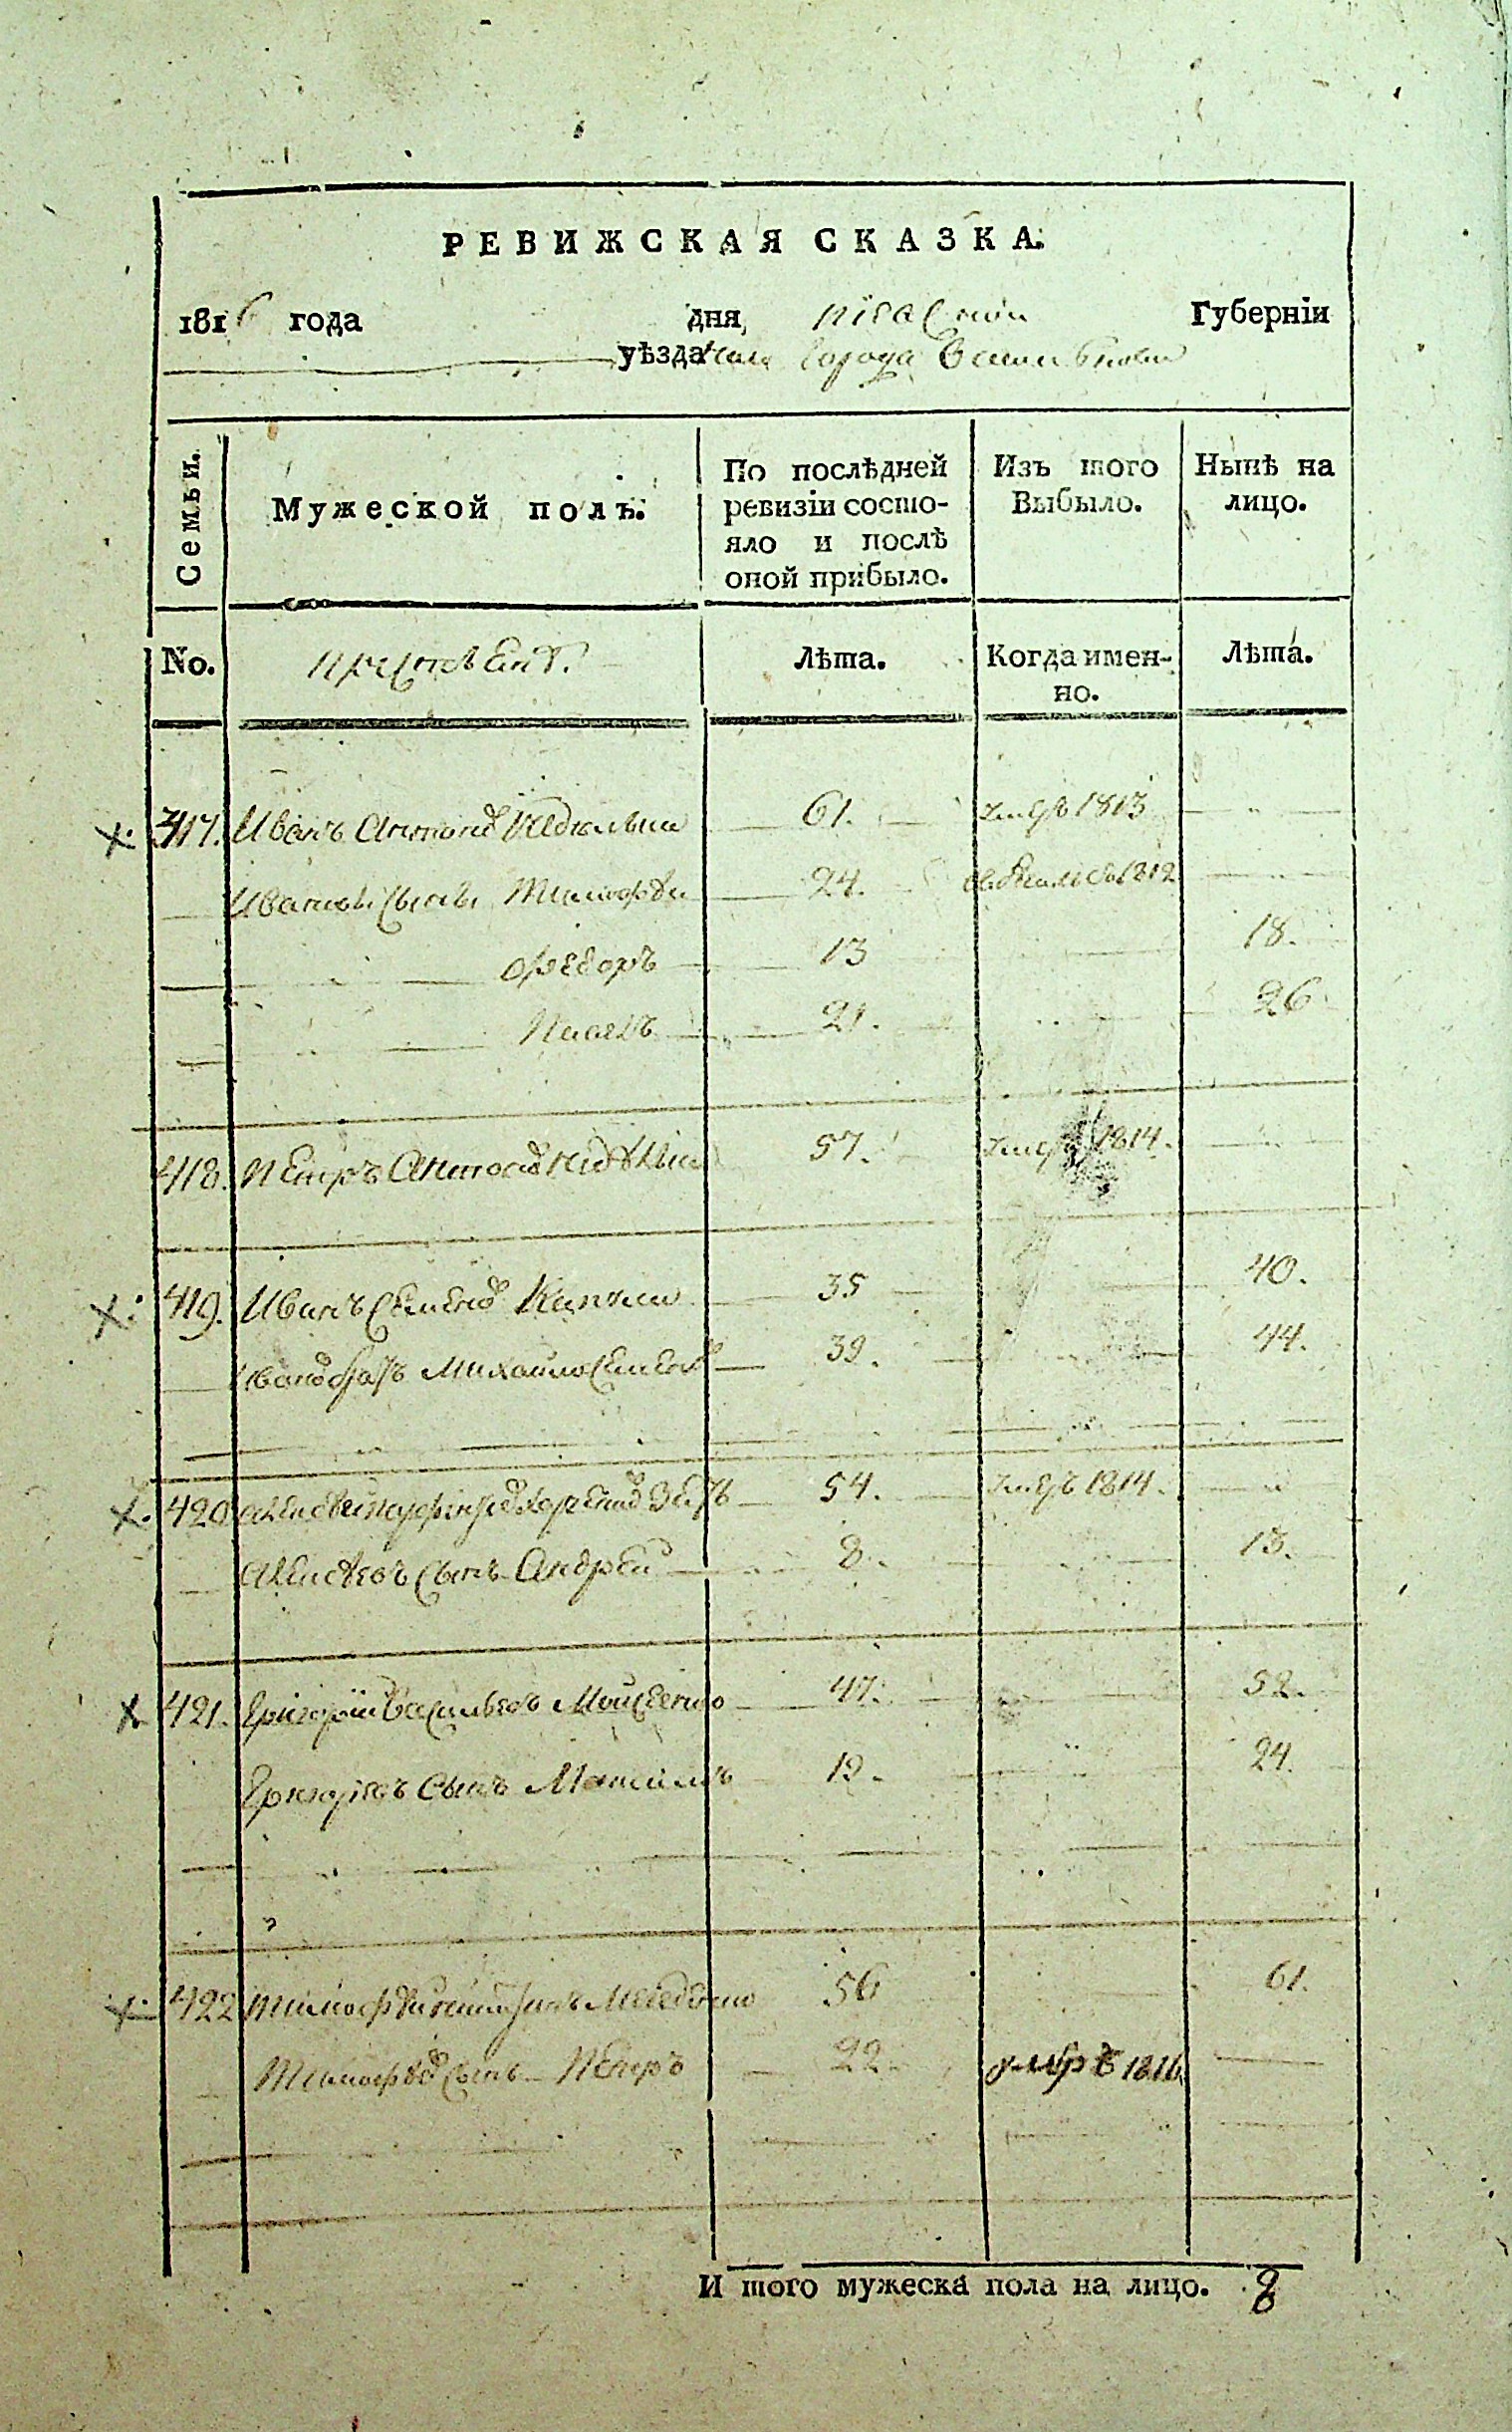 РЕВИЖСКАЯ СКАЗКА.
1816 года дня, Кіевской Губерніи
уѣзда города Василькова
Семьи. Мужеской полъ. По послѣдней ревизіи состо- яло и послѣ оной прибыло. Изъ того Выбыло. Нынѣ на лицо.
No. Лѣта. Когда имен- но. Лѣта.
417. Иванъ Антоновъ 61. умеръ 1813
Ивановы сыны Тимофѣй 24. 1812
Федоръ 13 18.
Павелъ 21. 26
418. Петръ Антоновъ 57. умеръ 1814.
419. Иванъ Семеновъ 35 40.
Ивановъ братъ Михайло Семеновъ 39. 44.
420 Алексѣй 54. умеръ 1814.
Алексѣевъ сынъ Андрей 8. 13.
421. Григорій Васильевъ Моисеенко 47. 52.
Григорьевъ сынъ Максимъ 19. 24.
422 Тимофѣй 56 61.
Тимофѣевъ сынъ Петръ 22 умре 1816.
И того мужеска пола на лицо. 8